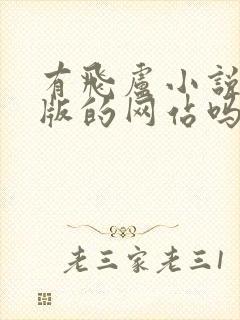 有飛盧小説
版的网佔吗
老三家老三1